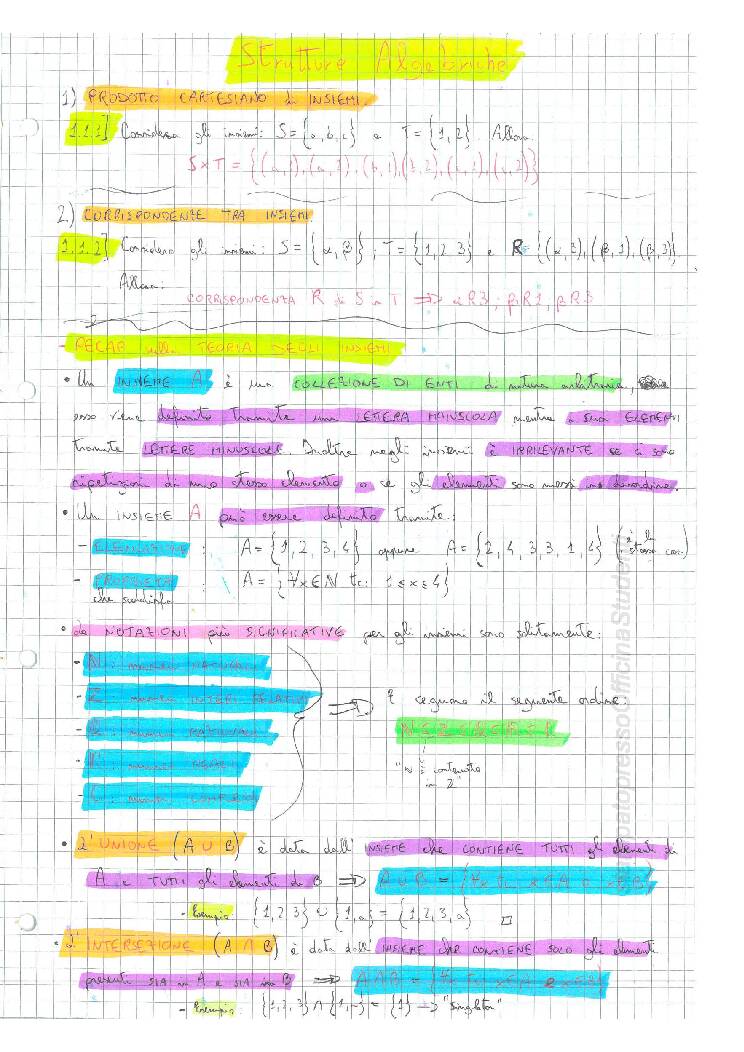 Strutture Algebriche
1) PRODOTTO CARTESIANO di INSIEMI.
1.1.1] Considera gli insiemi: S = {a, b, c} e T = {1, 2}. Allora:
S×T = {(a,1),(a,2),(b,1),(b,2),(c,1),(c,2)}
2) CORRISPONDENZE TRA INSIEMI
1.1.2] Considera gli insiemi: S = {α, β}; T = {1, 2, 3} e R = {(α,3),(β,1),(β,3)}
Allora:
CORRISPONDENZA R da S a T ⇒ αR3; βR1, βR3
- RECAP sulla TEORIA DEGLI INSIEMI
• Un INSIEME A è una COLLEZIONE DI ENTI di natura arbitraria,
esso viene definito tramite una LETTERA MAIUSCOLA mentre i suoi ELEMENTI
tramite LETTERE MINUSCOLE. Inoltre negli insiemi è IRRILEVANTE se ci sono
ripetizioni di uno stesso elemento o se gli elementi sono messi in disordine.
• Un INSIEME A può essere definito tramite:
- ELENCAZIONE : A = {1, 2, 3, 4} oppure A = {2, 4, 3, 3, 1, 4} (è la stessa cosa)
- PROPRIETÀ : A = {∀x∈N tc: 1≤x≤4}
che soddisfa
• Le NOTAZIONI più SIGNIFICATIVE per gli insiemi sono solitamente:
- N : numeri NATURALI
- Z : numeri INTERI RELATIVI
- Q : numeri RAZIONALI
- R : numeri REALI
- C : numeri COMPLESSI
⇒ E seguono il seguente ordine:
N ⊆ Z ⊆ Q ⊆ R ⊆ C
"N è contenuto
in Z"
• L'UNIONE (A ∪ B) è data dall'INSIEME che CONTIENE TUTTI gli elementi di
A e TUTTI gli elementi di B ⇒ A ∪ B = {∀x tc. x∈A o x∈B}
- Esempio: {1, 2, 3} ∪ {1, a} = {1, 2, 3, a} □
• L'INTERSEZIONE (A ∩ B) è data dall'INSIEME che CONTIENE SOLO gli elementi
presenti SIA in A e SIA in B ⇒ A ∩ B = {∀x tc. x∈A e x∈B}
- Esempio: {1, 2, 3} ∩ {1, a} = {1} → "Singleton"